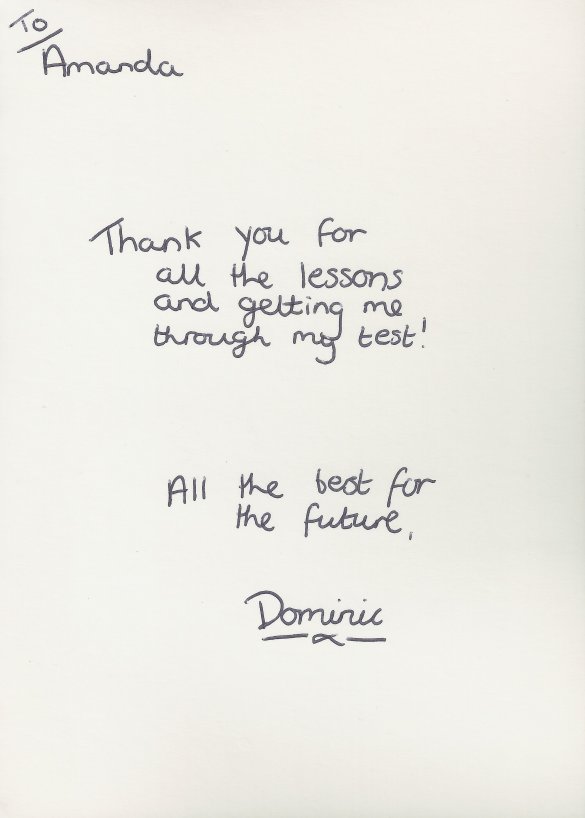 To
Amanda
Thank you for
all the lessons
and getting me
through my test!
All the best for
the future,
Dominic